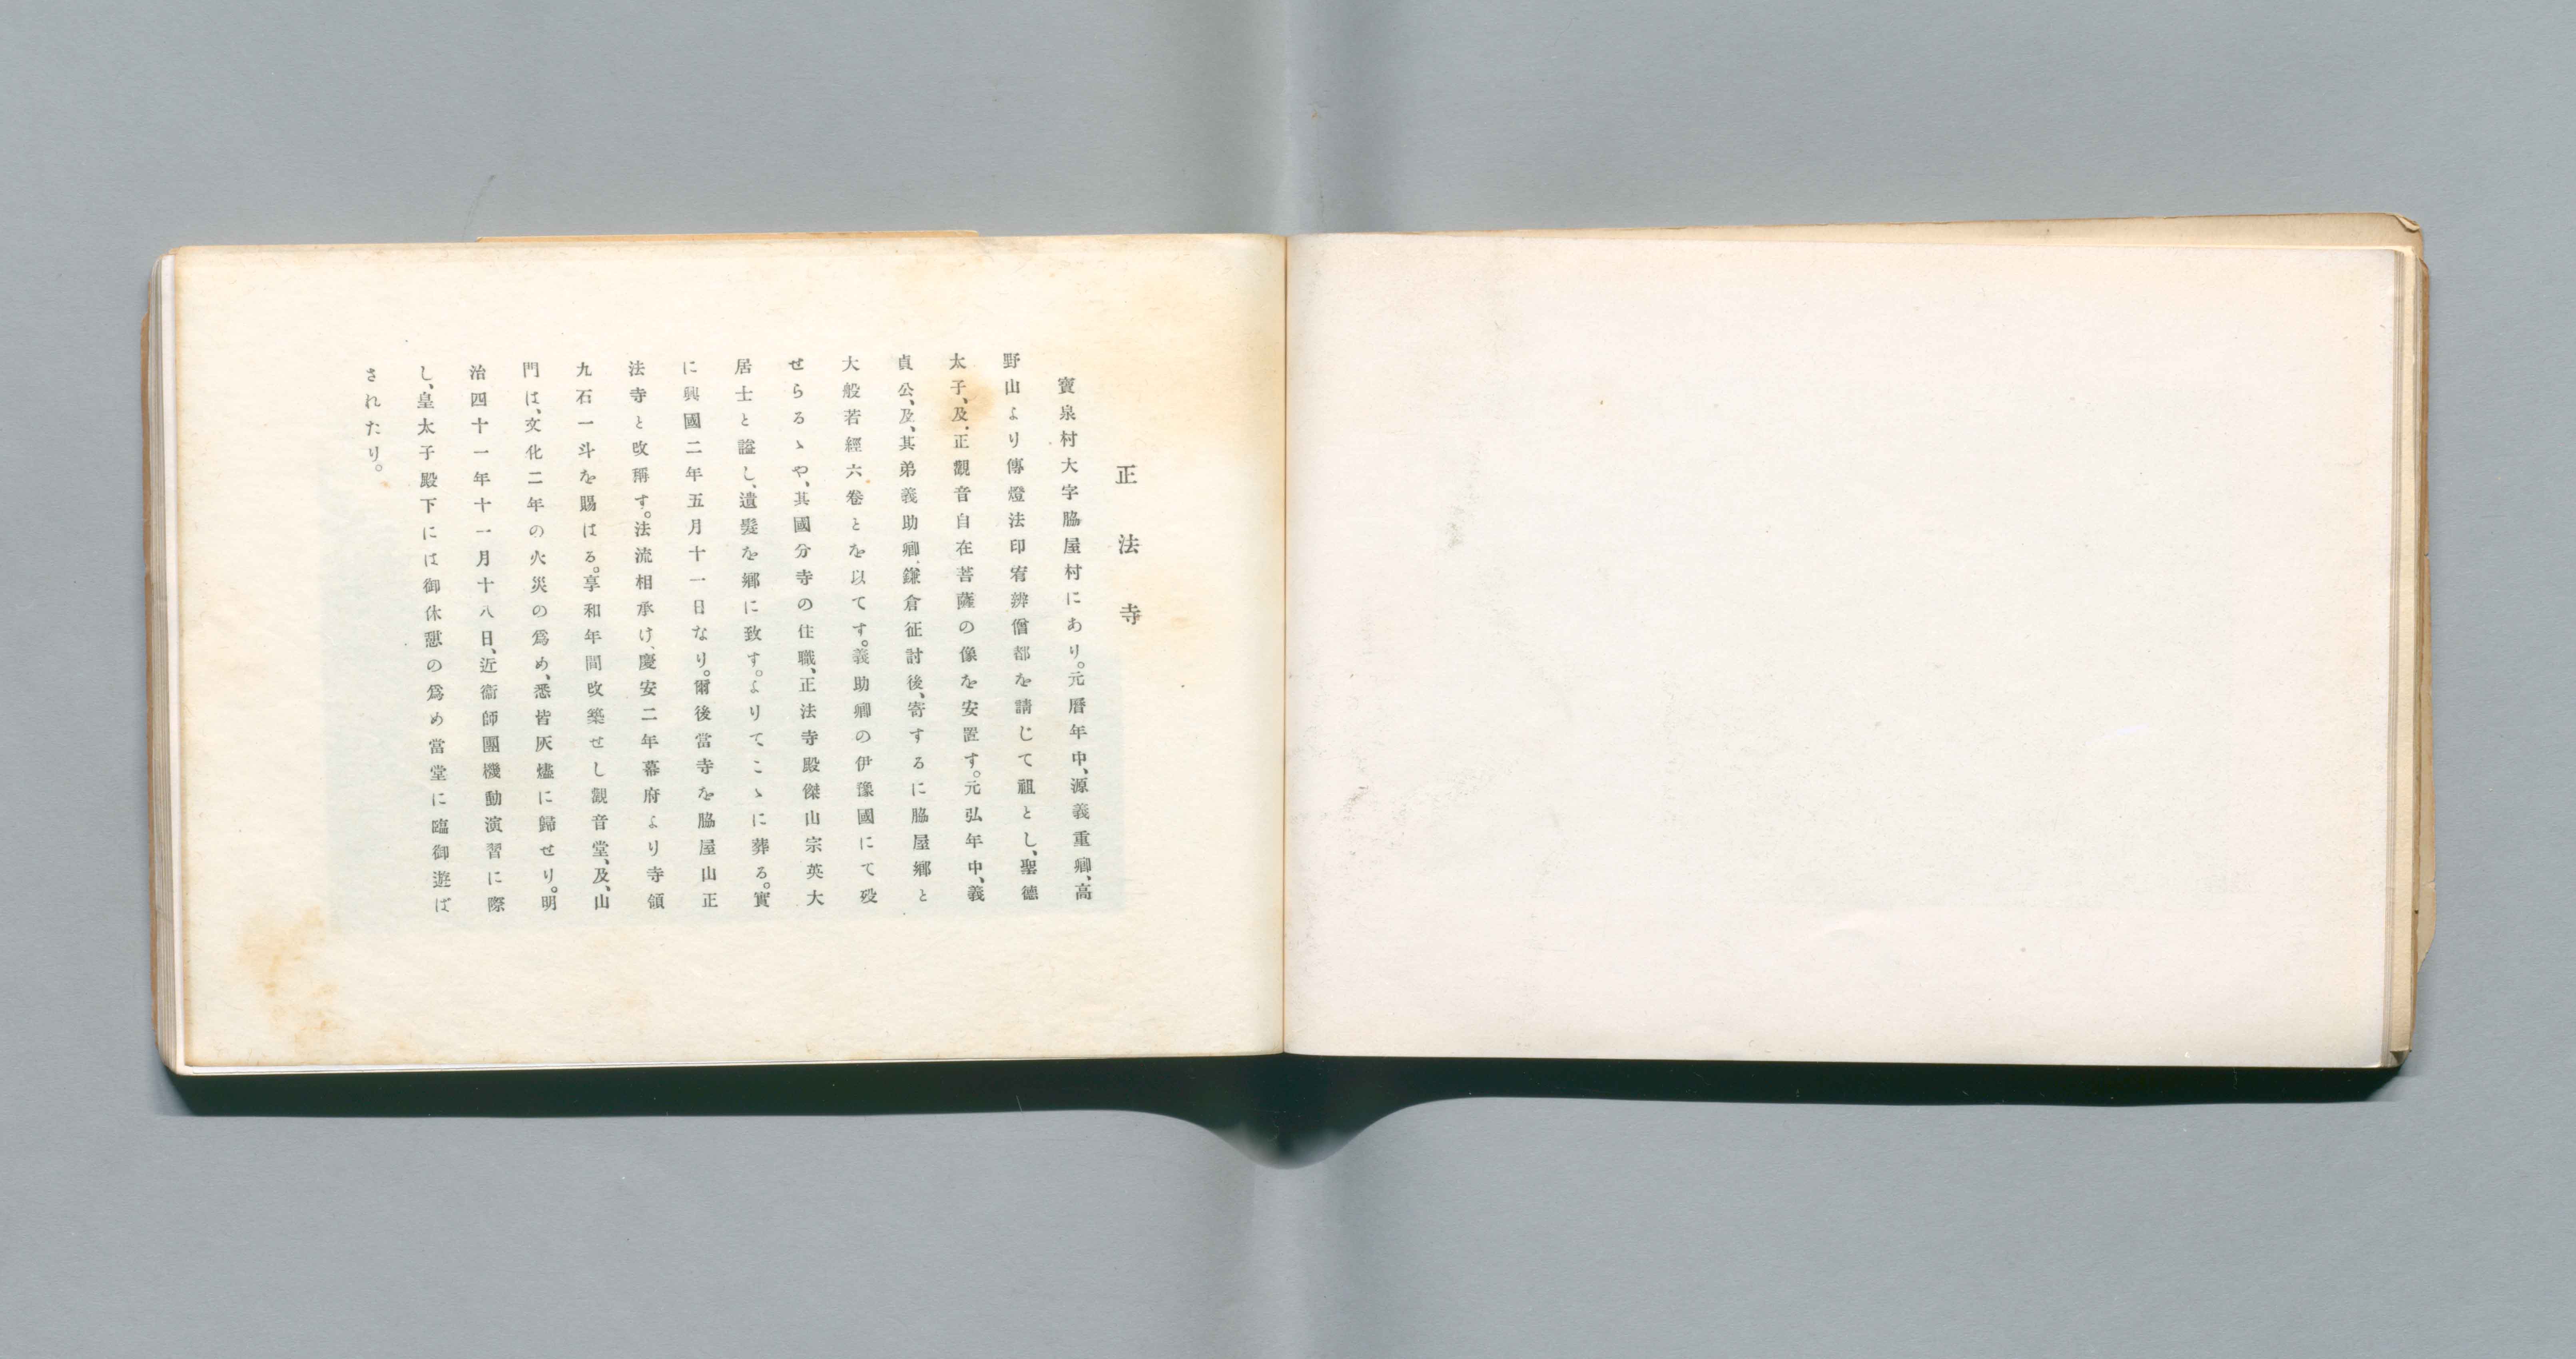 正法寺
寶泉村大字脇屋村にあり。元曆年中、源義重卿、高
野山より傳燈法印宥辨僧都を請じて祖とし、聖德
太子、及、正觀音自在菩薩の像を安置す。元弘年中、義
貞公、及、其弟義助卿、鎌倉征討後、寄するに脇屋鄕と
大般若經六卷とを以てす。義助卿の伊豫國にて歿
せらるゝや、其國分寺の住職、正法寺殿傑山宗英大
居士と謚し、遺髮を鄕に致す。よりてこゝに葬る。實
に興國二年五月十一日なり。爾後當寺を脇屋山正
法寺と改稱す。法流相承け、慶安二年幕府より寺領
九石一斗を賜はる。享和年間改築せし觀音堂、及、山
門は、文化二年の火災の爲め、悉皆灰燼に歸せり。明
治四十一年十一月十八日、近衞師團機動演習に際
し、皇太子殿下には御休憩の爲め當堂に臨御遊ば
されたり。